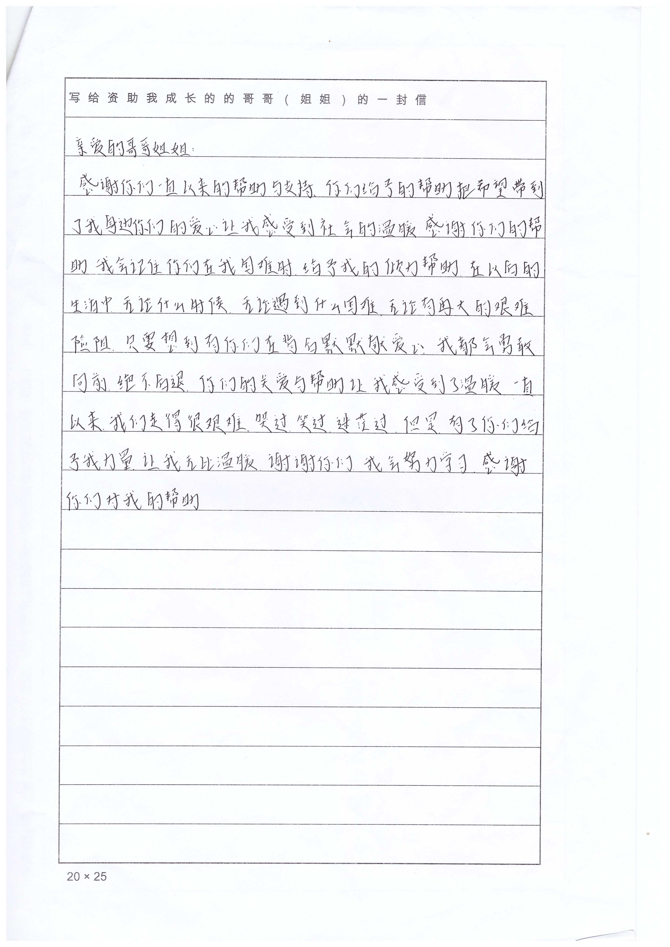 写给资助我成长的的哥哥(姐姐)的一封信
亲爱的哥哥姐姐:
感谢你们一直以来的帮助与支持 你们给予的帮助把希望带到
了我身边你们的爱心让我感受到社会的温暖 感谢你们的帮
助 我会记住你们在我困难时 给予我的倾力帮助 在以后的
生活中 无论什么时候 无论遇到什么困难 无论有再大的艰难
险阻 只要想到有你们在背后默默献爱心 我都会勇敢
向前 绝不后退 你们的关爱与帮助让我感受到了温暖 一直
以来 我们走得很艰难 哭过 笑过 迷茫过 但是 有了你们给
予我力量 让我无比温暖 谢谢你们 我会努力学习 感谢
你们对我的帮助
20×25